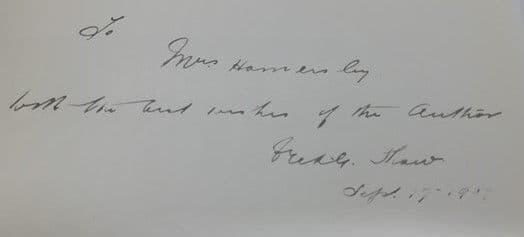 To
Mrs Hamersley
with the best wishes of the Author
Fred. G. Shaw
Sept. 17